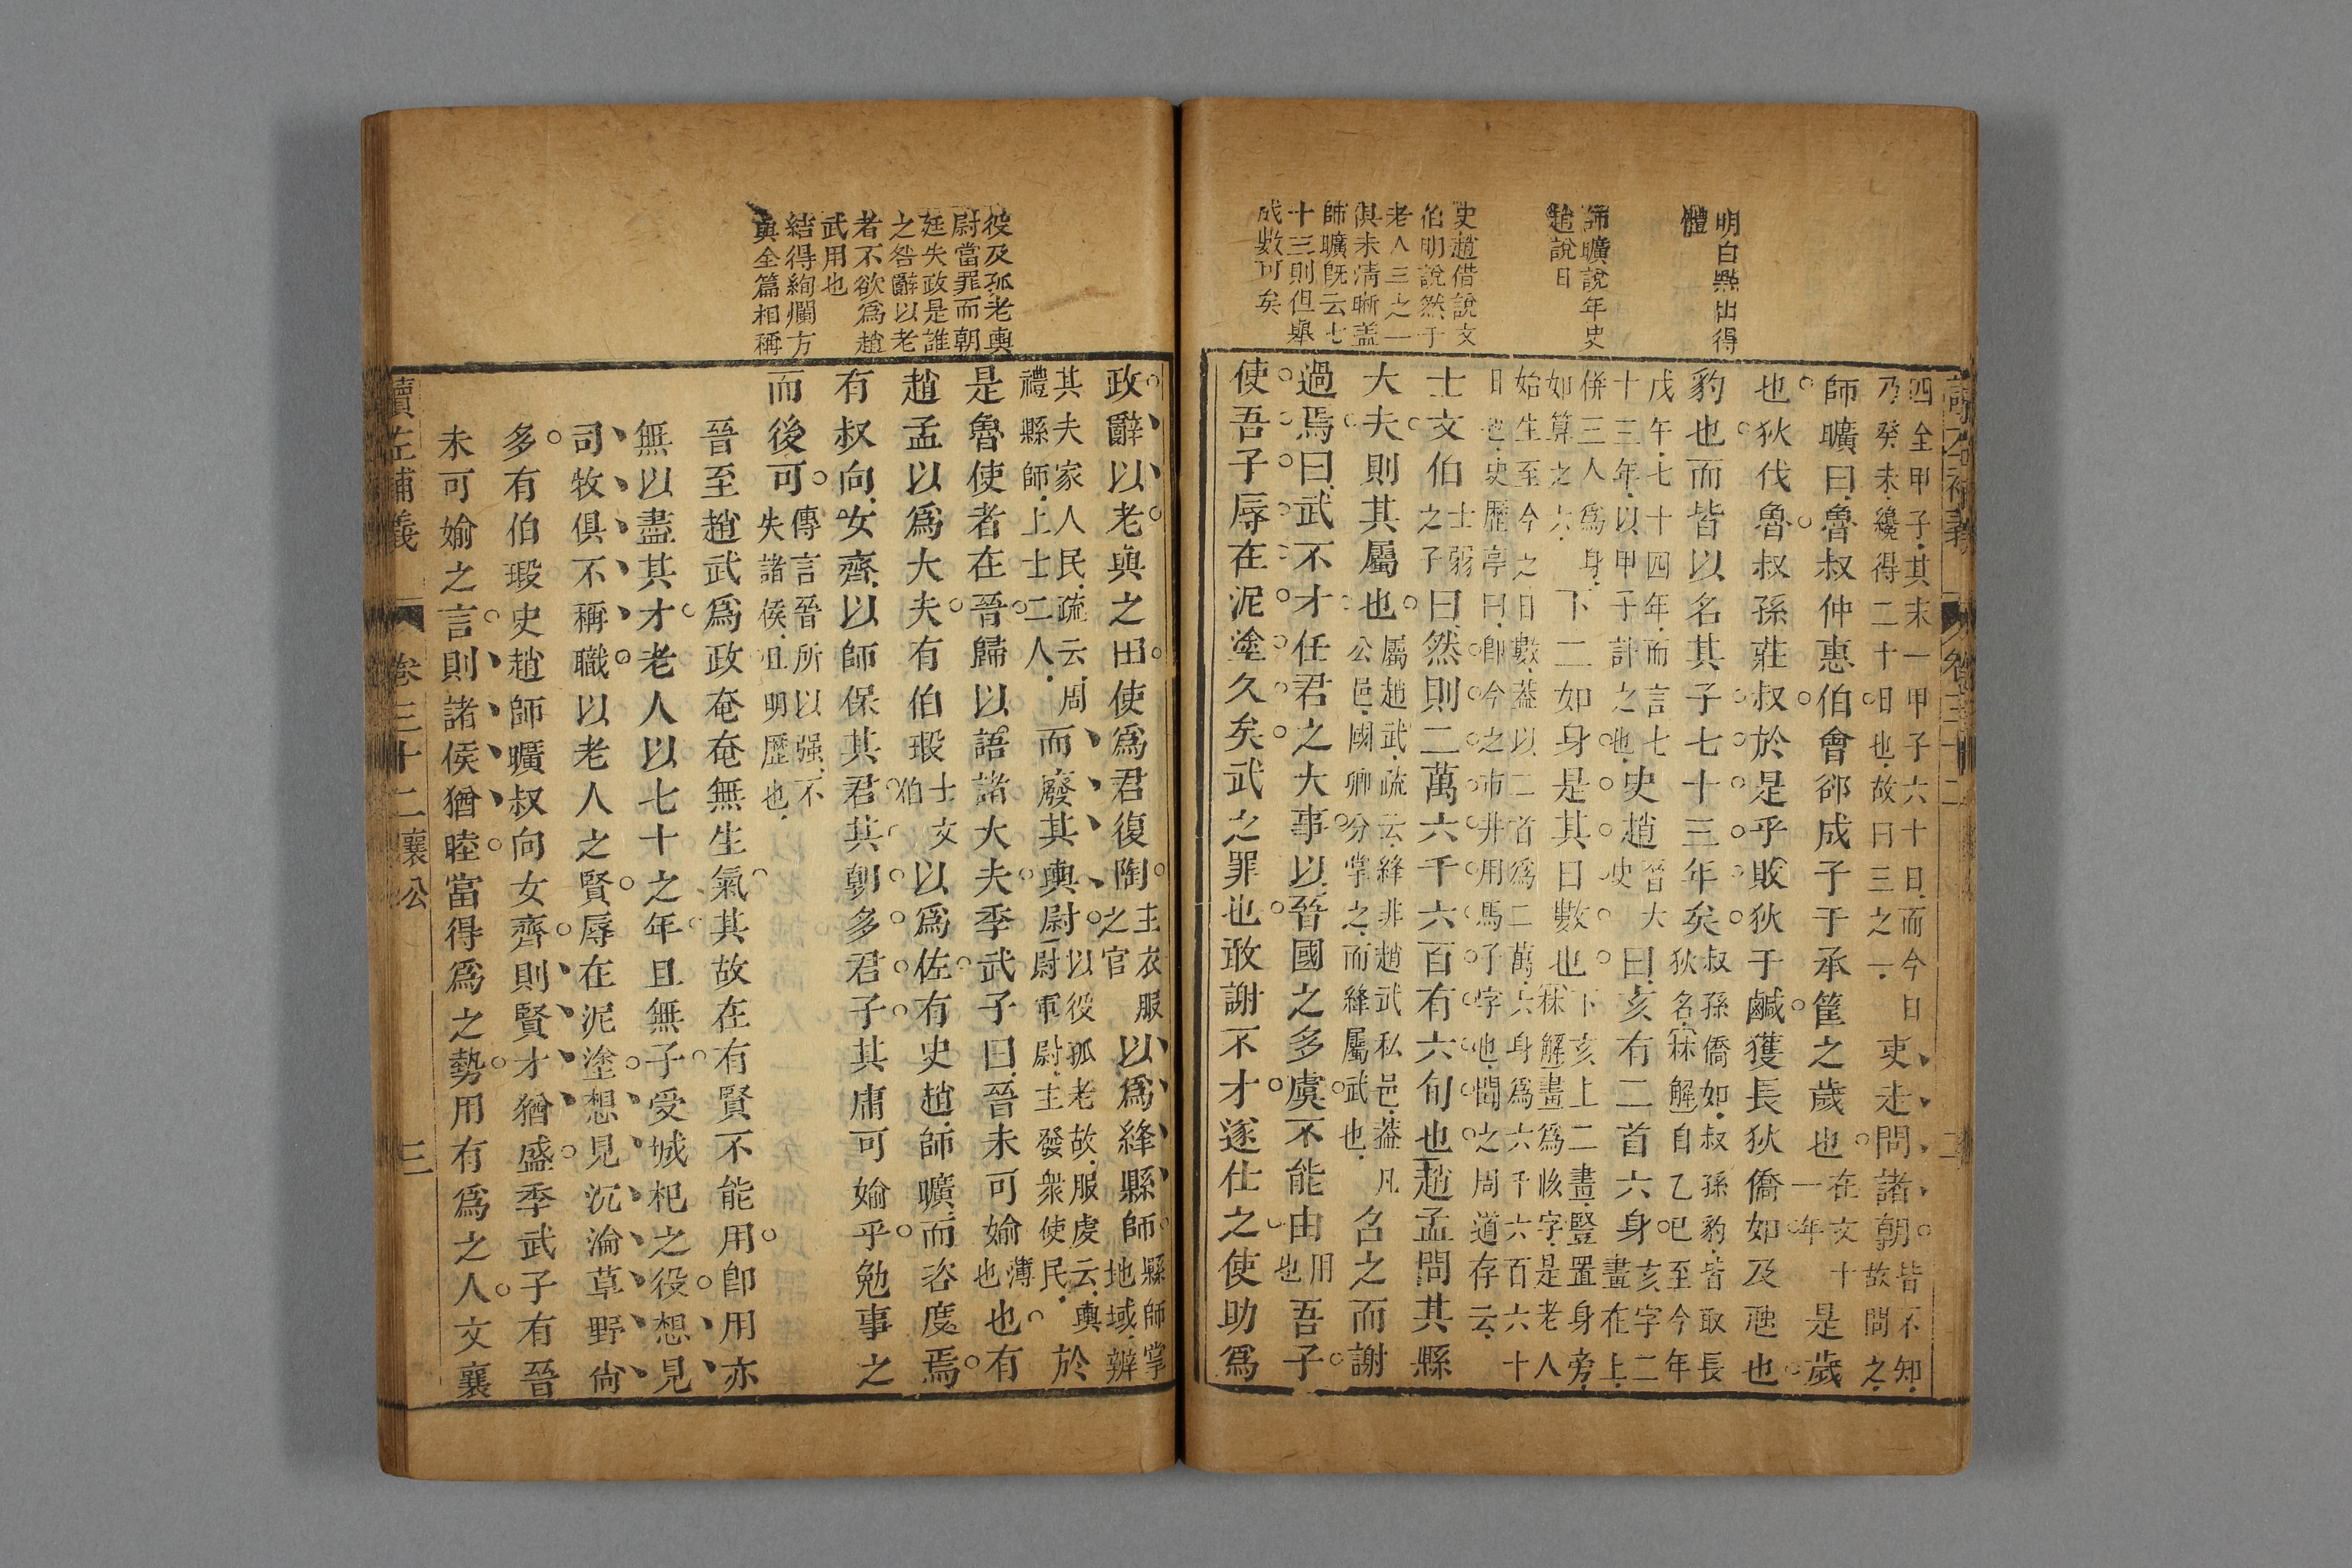 明白點出得
體
師曠說年史
趙說日
史趙借說文
伯明說然于
老人三之一
俱未清晰蓋
師曠旣云七
十三則但舉
成數可矣
四全甲子其末一甲子六十日而今日
乃癸未纔得二十日也故曰三之一
吏走問諸朝
皆不知
故問之
師曠曰魯叔仲惠伯會郤成子于承筐之歲也
在文十
一年
是歲
也狄伐魯叔孫莊叔於是乎敗狄于鹹獲長狄僑如及虺也
豹也而皆以名其子七十三年矣
叔孫僑如叔孫豹皆取長
狄名寀解自乙巳至今年
戊午七十四年而言七
十三年以甲子計之也
史趙
晉大
史
曰亥有二首六身
亥字二
畫在上
併三人爲身
如算之六
下二如身是其日數也
下亥上二畫豎置身旁
寀解畫爲㑂字是老人
始生至今之日數蓋以二首爲二萬六身爲六千六百六十
日也史歷亭曰卽今之市井用馬子字也間之周道存云
士文伯
士弱
之子
曰然則二萬六千六百有六旬也趙孟問其縣
大夫則其屬也
屬趙武疏云絳非趙武私邑蓋凡
公邑國卿分掌之而絳屬武也
召之而謝
過焉曰武不才任君之大事以晉國之多虞不能由
用
也
吾子
使吾子辱在泥塗久矣武之罪也敢謝不才遂仕之使助爲
讀左補義
卷三十二
二
役及孤老輿
尉當罪而朝
廷失政是誰
之咎辭以老
者不欲爲趙
武用也
結得絢爛方
與全篇相稱
政辭以老與之田使爲君復陶
主衣服
之官
以爲絳縣師
縣師掌
地域辨
其夫家人民疏云周
禮縣師上士二人
而廢其輿尉
以役孤老故服虔云輿
尉軍尉主發衆使民
於
是魯使者在晉歸以語諸大夫季武子曰晉未可媮
薄
也
也有
趙孟以爲大夫有伯瑕
士文
伯
以爲佐有史趙師曠而咨度焉
有叔向女齊以師保其君其朝多君子其庸可媮乎勉事之
而後可
傳言晉所以强不
失諸侯且明歷也
晉至趙武爲政奄奄無生氣其故在有賢不能用卽用亦
無以盡其才老人以七十之年且無子受城杞之役想見
司牧俱不稱職以老人之賢辱在泥塗想見沉淪草野尙
多有伯瑕史趙師曠叔向女齊則賢才猶盛季武子有晉
未可媮之言則諸侯猶睦當得爲之勢用有爲之人文襄
讀左補義
卷三十二
襄公
三